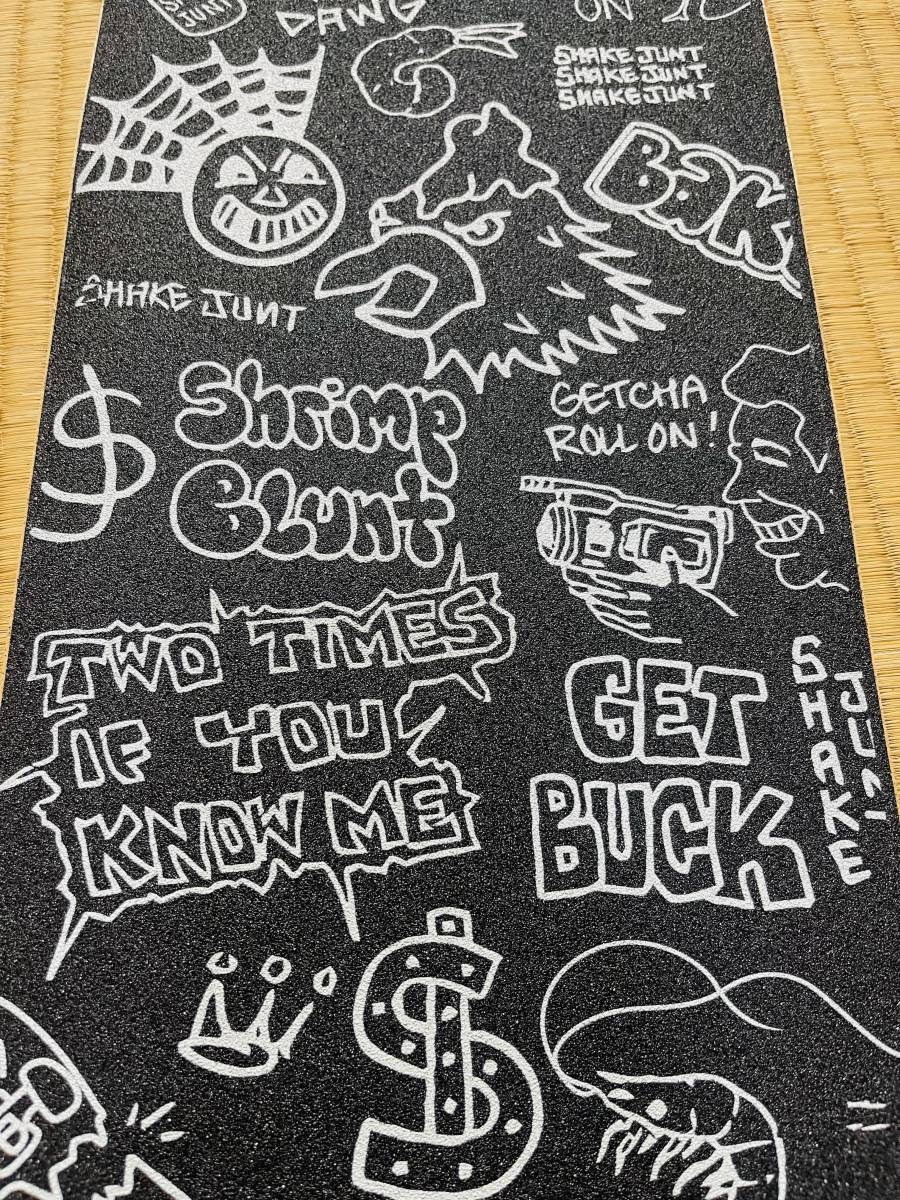 JUNT
DAWG
ON
SHAKE JUNT
SHAKE JUNT
SHAKE JUNT
SHAKE JUNT
$
Shrimp
Blunt
GETCHA
ROLL ON!
TWO TIMES
IF YOU
KNOW ME
GET
BUCK
SHAKE
JUNT
$